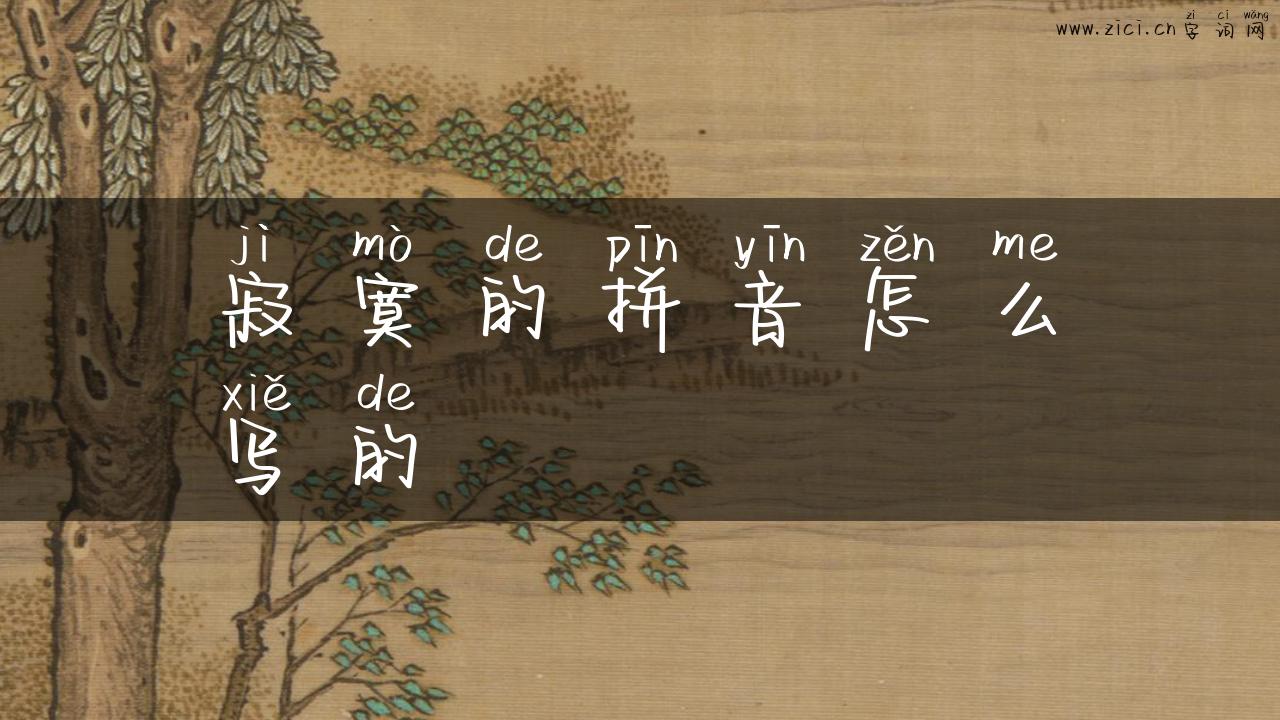 zì cí wǎng
www.zici.cn 字词网
jì mò de pīn yīn zěn me
寂寞的拼音怎么
xiě de
写的